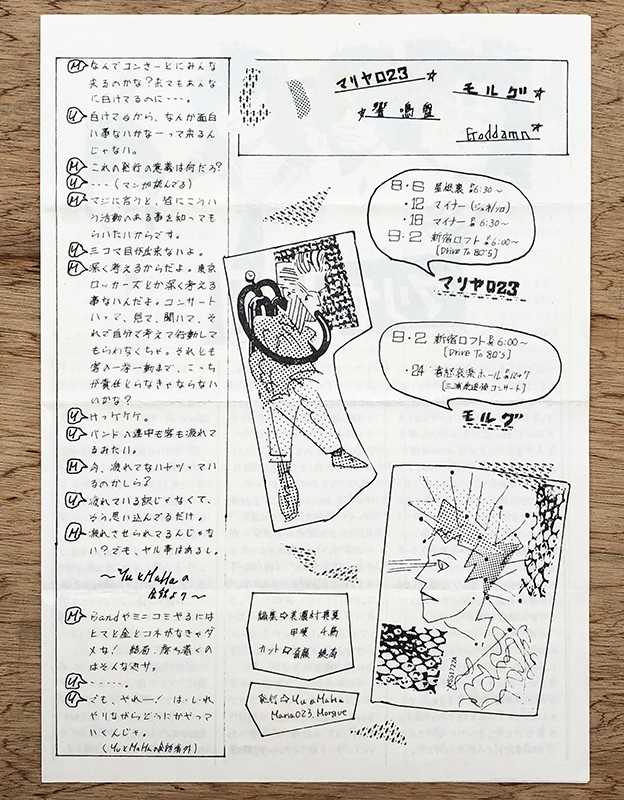 M なんでコンさーとにみんな
来るのかな？来てもあんな
に白けてるのに・・・。
Y 白けてるから、なんか面白
い事ないかなーって来るん
じゃない。
M これの発行の意義は何だろ？
Y ・・・（マンガ読んでる）
M マジに言うと、皆にこうい
う活動のある事を知っても
らいたいからです。
Y 三コマ目が出来ないよ。
M 深く考えるからだよ。東京
ロッカーズとか深く考える
事ないんだよ。コンサート
いって、見て、聞いて、そ
れで自分で考えて行動して
もらわなくちゃ。それとも
客の一挙一動まで、こっち
が責任とらなきゃならない
のかな？
Y けっケケケ。
Y バンドの連中も客も疲れて
るみたい。
M 今、疲れてないヤツ・てい
るのかしら？
Y 疲れている訳じゃなくて、
そう思い込んでるだけ。
M 疲れさせられてるんじゃな
い？でも、ヤル事はあるし。
〜YuとMaHaの
会話より〜
M Bandやミニコミやるには
ヒマと金とコネがなきゃダ
メな！ 結局、落ち着くの
はそんな処サ。
Y ・・・・・。
Y でも、やれー！ は・しれ
やりながらどうにかやって
いくんじゃ。
（YuとMaHaの会話番外）
マリヤ023☆
モルグ☆
☆響鳴塾
Goddamn☆
8・5 屋根裏 P.M.6:30〜
・12 マイナー（ジュネ/ソロ）
・18 マイナー P.M.6:30〜
9・2 新宿ロフト P.M.6:00〜
［Drive To 80'S］
マリヤ023
9・2 新宿ロフト P.M.6:00〜
［Drive To 80's］
モルグ
編集⇨美濃村典夏
甲斐 千鳥
カット⇨
発行⇨Yu a MaHa
Maria023, Morgue